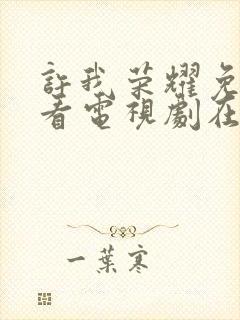 許我荣耀免
看電視劇在
一葉寒